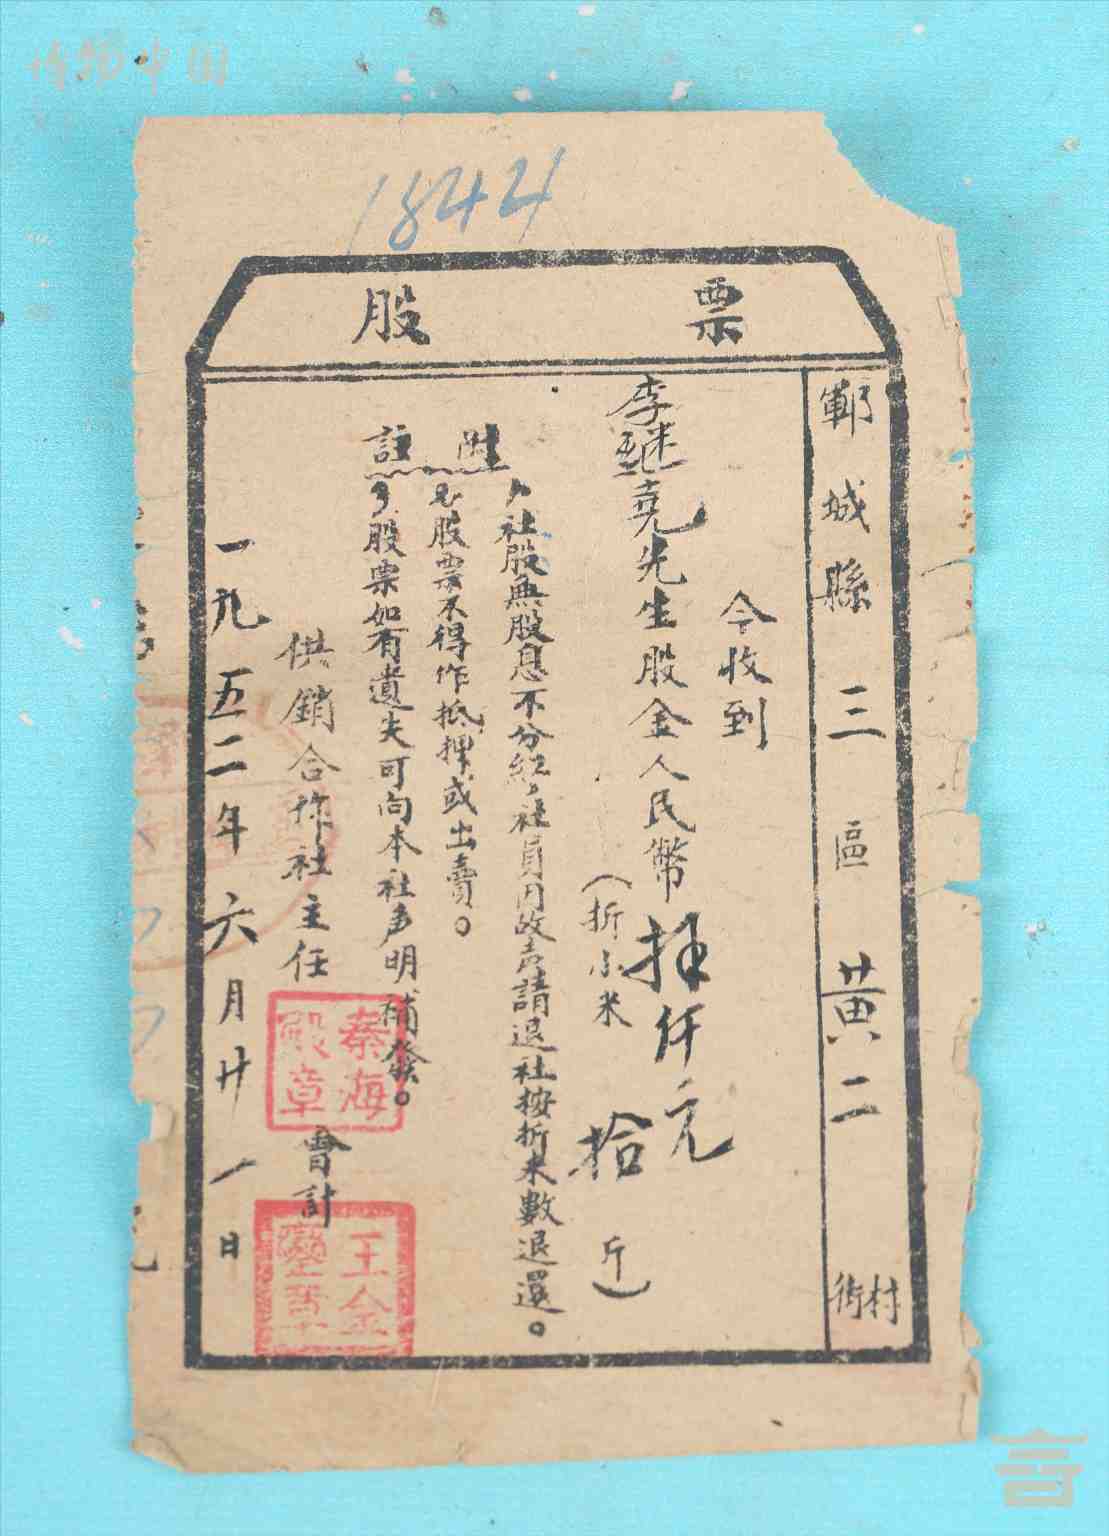 博物中国
1844
股票
鄆城縣三區黄二村街
今收到
李継堯先生股金人民幣拝仟元
（折小米拾斤）
附註
1,社股無股息不分紅,社員因故声請退社按折米數退還。
2,股票不得作抵押或出賣。
3,股票如有遺失可向本社声明補發。
供銷合作社主任
秦海殿章
會計
王金璽章
一九五二年六月廿一日
善